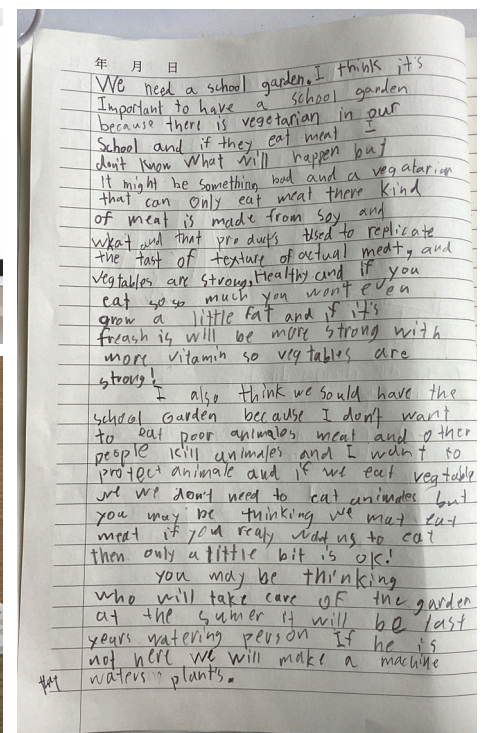 年 月 日
We need a school garden. I think it's
Important to have a school garden
because there is vegetarian in our
School and if they eat meat I
don't know what will happen but
It might be something bad and a vegatarian
that can only eat meat there kind
of meat is made from soy and
wheat and that products used to replicate
the tast of texture of actual meat, and
vegtables are strong, Healthy and if you
eat so so much you wont even
grow a little fat and if it's
freash is will be more strong with
more vitamin so vegtables are
strong!
I also think we sould have the
school Garden because I don't want
to eat poor animales meat and other
people kill animales and I want to
protect animale and if we eat vegtable
we we don't need to eat animales but
you may be thinking we mat eat
meat if you realy want us to eat
then only a little bit is ok!
you may be thinking
who will take care of the garden
at the sumer it will be last
years watering person If he is
not here we will make a machine
waters plant's.